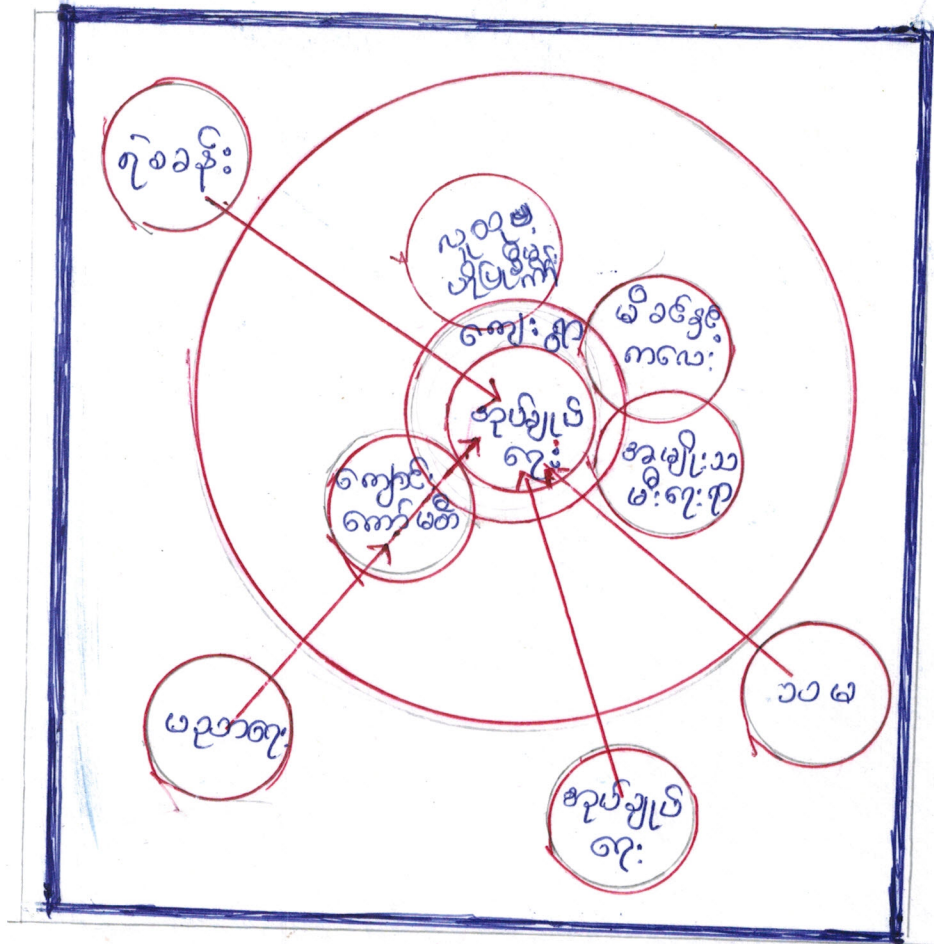 ရဲစခန်း
လူထုမှ
ကျေးရွာ
မိခင်နှင့်
ကလေး
အုပ်ချုပ်
ရေး
အမျိုးသ
မီးရေးရာ
ကျောင်း
ကော်မတီ
ပညာရေး
အုပ်ချုပ်
ရေး